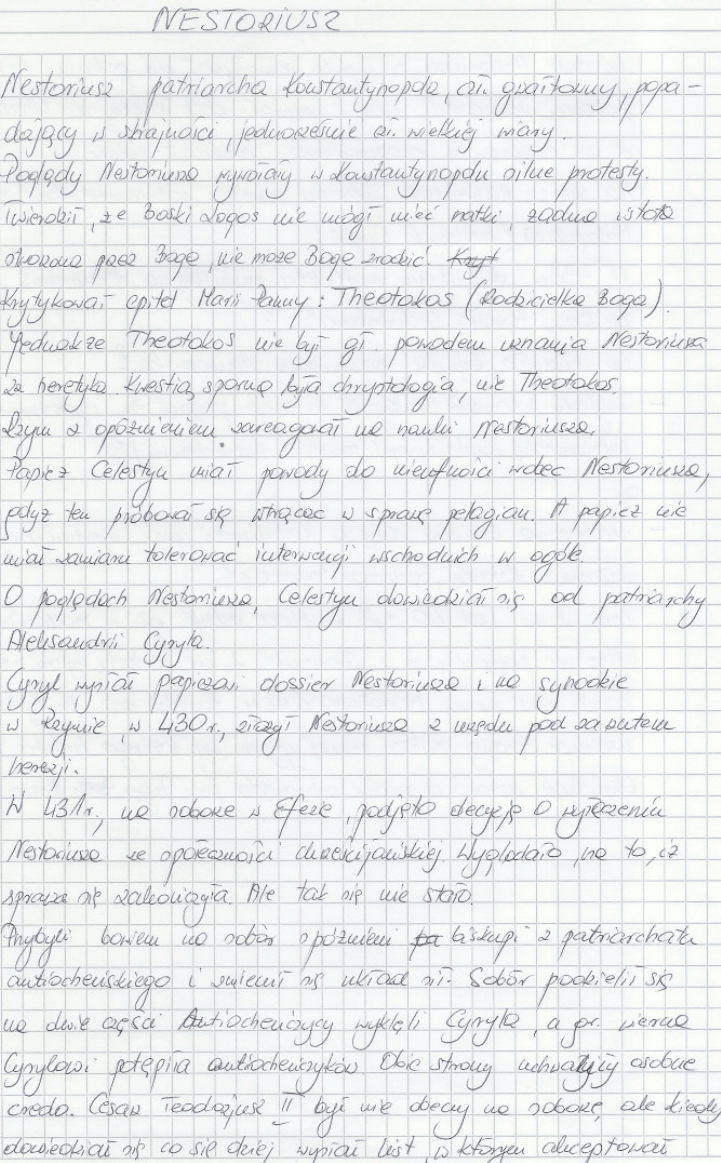 NESTORIUSZ
Nestoriusz patriarcha Konstantynopola, czł. gwałtowny, popa-
dający w skrajności, jednocześnie czł. wielkiej wiary.
Poglądy Nestoriusza wywołały w Konstantynopolu silne protesty.
Twierdził, że Boski Logos nie mógł mieć matki, żadna istota
stworzona przez Boga, nie może Boga zrodzić. Kryt
Krytykował epitet Marii Panny: Theotokos (Rodzicielka Boga).
Jednakże Theotokos nie był gł. powodem uznania Nestoriusza
za heretyka. Kwestią sporną była chrystologia, nie Theotokos.
Rzym z opóźnieniem zareagował na nauki Nestoriusza.
Papież Celestyn miał powody do nieufności wobec Nestoriusza,
gdyż ten próbował się wtrącać w sprawę pelagian. A papież nie
miał zamiaru tolerować interwencji wschodnich w ogóle.
O poglądach Nestoriusza, Celestyn dowiedział się od patriarchy
Aleksandrii Cyryla.
Cyryl wysłał papieżowi dossier Nestoriusza i na synodzie
w Rzymie, w 430r., złożył Nestoriusza z urzędu pod zarzutem
herezji.
W 431r., na soborze w Efezie, podjęto decyzję o wyłączeniu
Nestoriusza ze społeczności chrześcijańskiej. Wyglądało, na to, iż
sprawa się zakończyła. Ale tak się nie stało.
Przybyli bowiem na sobór spóźnieni biskupi z patriarchatu
antiocheńskiego i zmienił się układ sił. Sobór podzielił się
na dwie części Antiocheńczycy wyklęli Cyryla, a gr. wierna
Cyrylowi potępiła antiocheńczyków. Obie strony uchwaliły osobne
credo. Cesarz Teodozjusz II był nie obecny na soborze, ale kiedy
dowiedział się co się dziej wysłał list, w którym akceptował